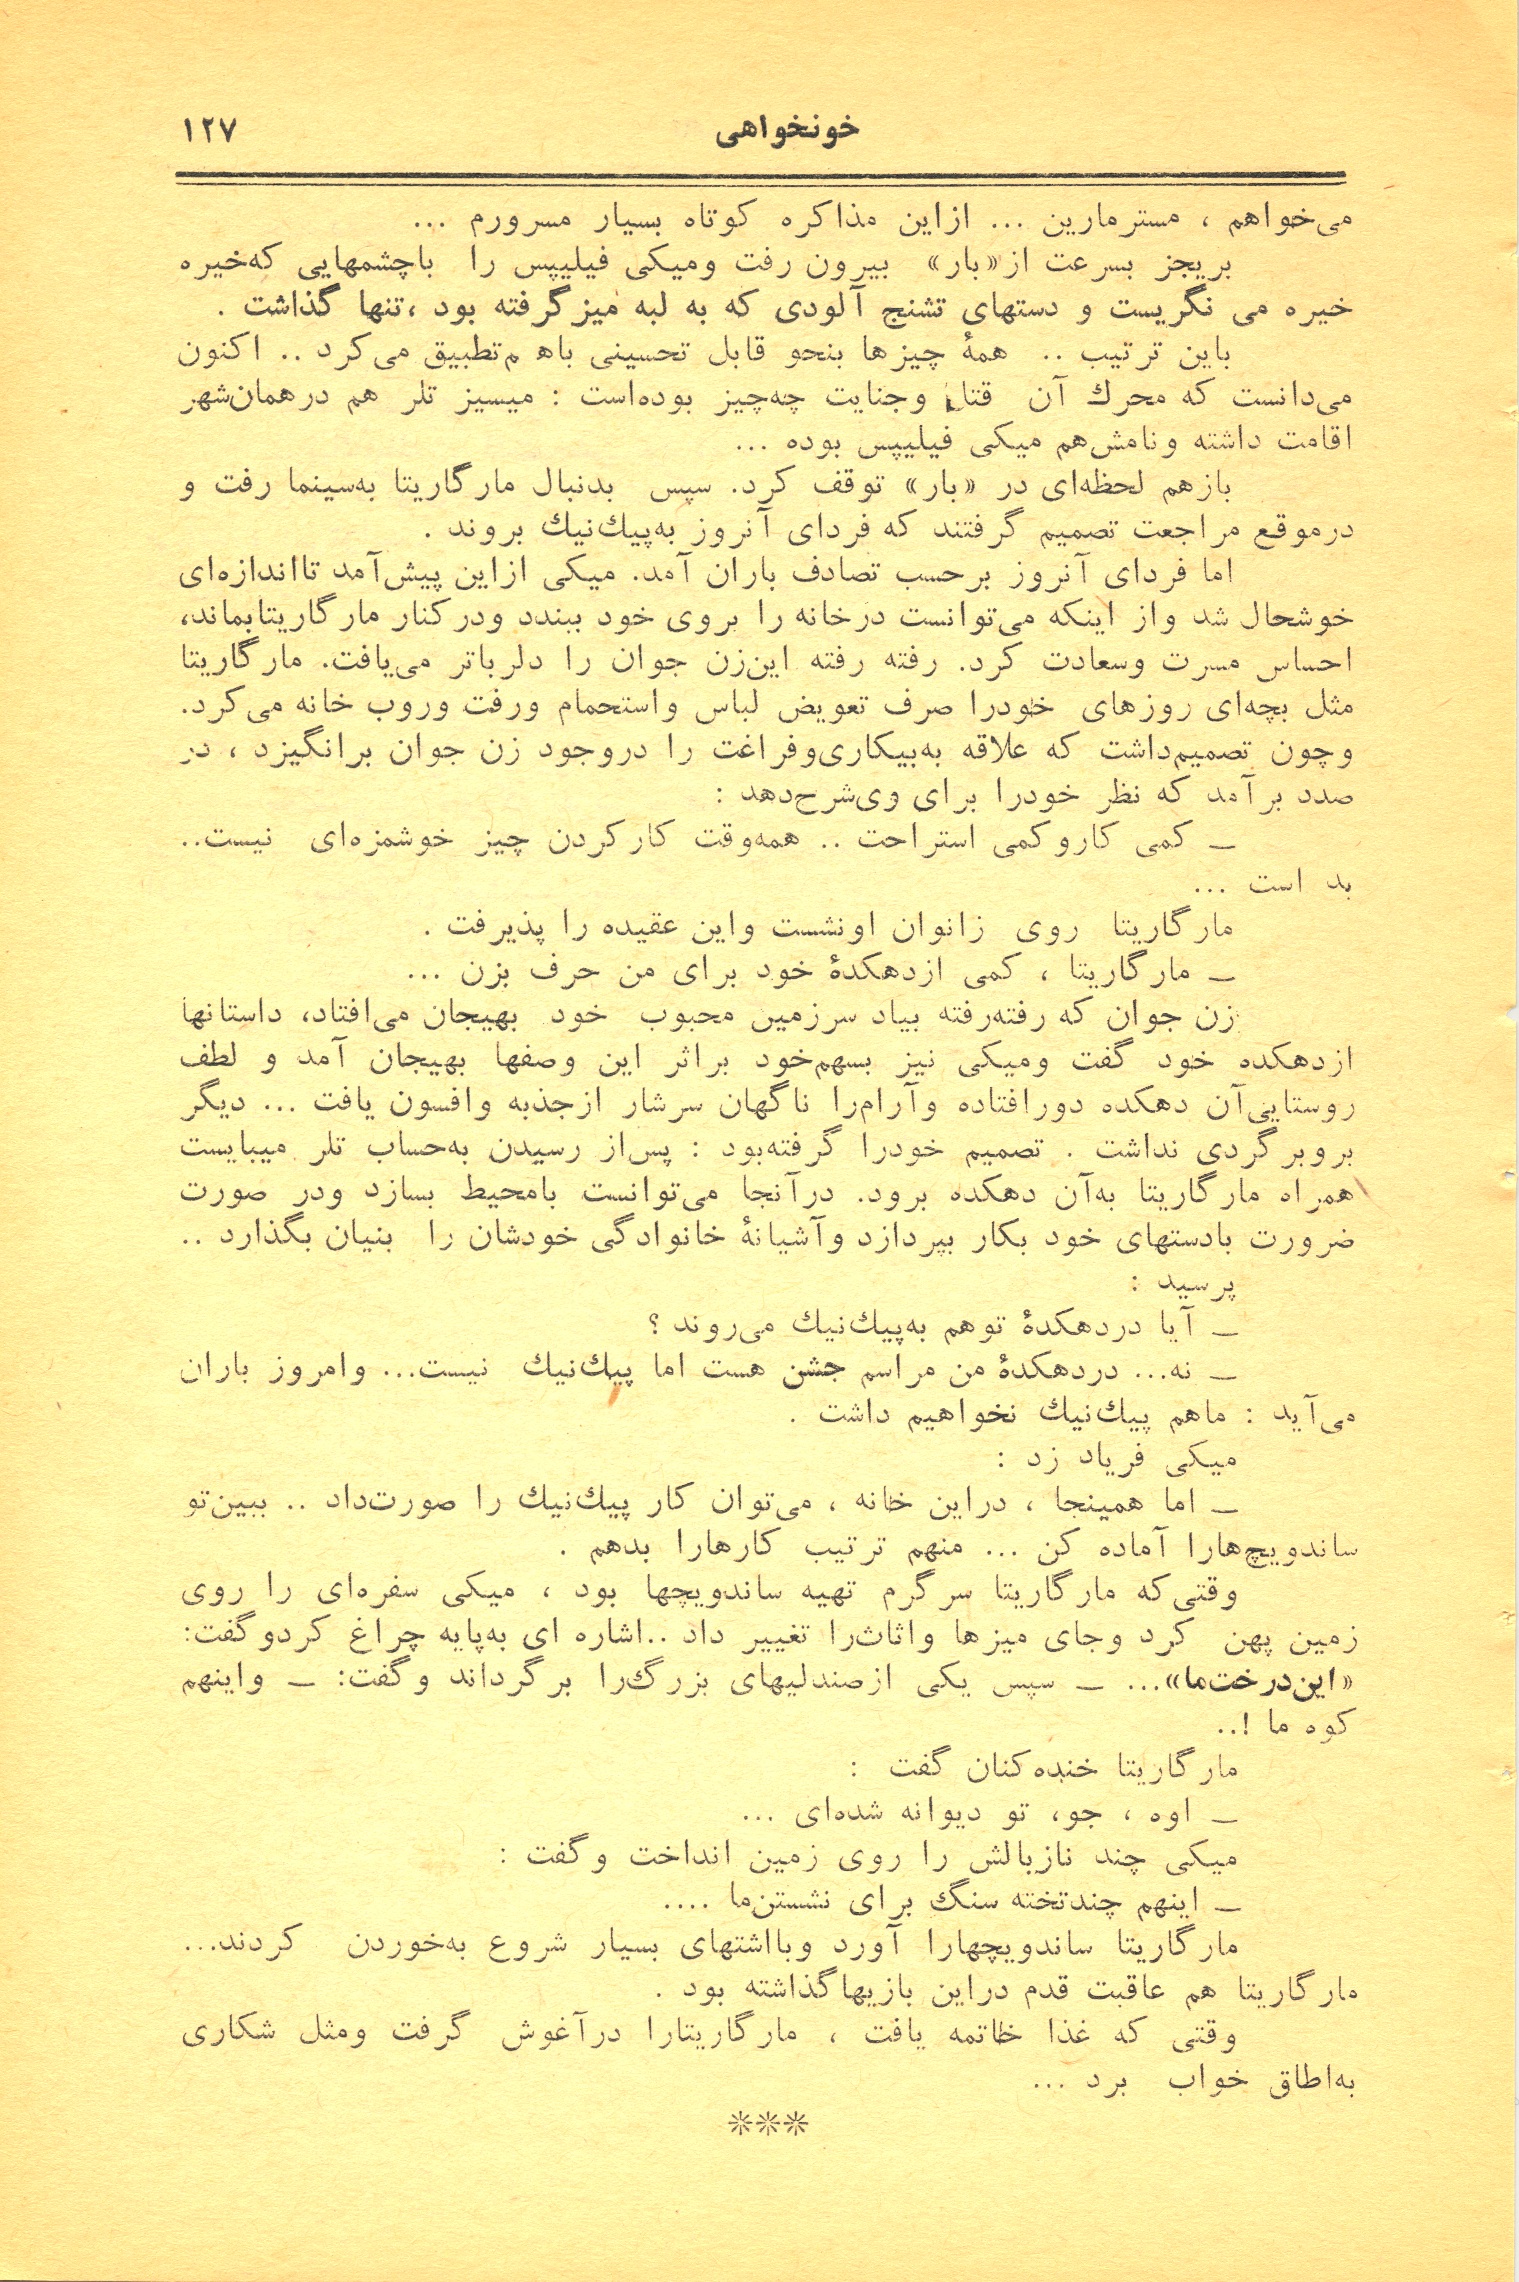 خونخواهی ۱۲۷
می‌خواهم ، مسترمارین ... ازاین مذاکره کوتاه بسیار مسرورم ...
بریجز بسرعت از«بار» بیرون رفت ومیکی فیلیپس را باچشمهایی که‌خیره
خیره می نگریست و دستهای تشنج آلودی که به لبه میزگرفته بود ،تنها گذاشت .
باین ترتیب .. همهٔ چیزها بنحو قابل تحسینی باهم‌تطبیق می‌کرد .. اکنون
می‌دانست که محرك آن قتل وجنایت چه‌چیز بوده‌است : میسیز تلر هم درهمان‌شهر
اقامت داشته ونامش‌هم میکی فیلیپس بوده ...
بازهم لحظه‌ای در «بار» توقف کرد. سپس بدنبال مارگاریتا به‌سینما رفت و
درموقع مراجعت تصمیم گرفتند که فردای آنروز به‌پیك‌نیك بروند .
اما فردای آنروز برحسب تصادف باران آمد. میکی ازاین پیش‌آمد تااندازه‌ای
خوشحال شد واز اینکه می‌توانست درخانه را بروی خود ببندد ودرکنار مارگاریتابماند،
احساس مسرت وسعادت کرد. رفته رفته این‌زن جوان را دلرباتر می‌یافت. مارگاریتا
مثل بچه‌ای روزهای خودرا صرف تعویض لباس واستحمام ورفت وروب خانه می‌کرد.
وچون تصمیم‌داشت که علاقه به‌بیکاری‌وفراغت را دروجود زن جوان برانگیزد ، در
صدد برآمد که نظر خودرا برای وی‌شرح‌دهد :
ــ کمی کاروکمی استراحت .. همه‌وقت کارکردن چیز خوشمزه‌ای نیست..
بد است ...
مارگاریتا روی زانوان اونشست واین عقیده را پذیرفت .
ــ مارگاریتا ، کمی ازدهکدهٔ خود برای من حرف بزن ...
زن جوان که رفته‌رفته بیاد سرزمین محبوب خود بهیجان می‌افتاد، داستانها
ازدهکده خود گفت ومیکی نیز بسهم‌خود براثر این وصفها بهیجان آمد و لطف
روستایی‌آن دهکده دورافتاده وآرام‌را ناگهان سرشار ازجذبه وافسون یافت ... دیگر
بروبرگردی نداشت . تصمیم خودرا گرفته‌بود : پس‌از رسیدن به‌حساب تلر میبایست
همراه مارگاریتا به‌آن دهکده برود. درآنجا می‌توانست بامحیط بسازد ودر صورت
ضرورت بادستهای خود بکار بپردازد وآشیانهٔ خانوادگی خودشان را بنیان بگذارد ..
پرسید :
ــ آیا دردهکدهٔ توهم به‌پیك‌نیك می‌روند ؟
ــ نه... دردهکدهٔ من مراسم جشن هست اما پیك‌نیك نیست... وامروز باران
می‌آید : ماهم پیك‌نیك نخواهیم داشت .
میکی فریاد زد :
ــ اما همینجا ، دراین خانه ، می‌توان کار پیك‌نیك را صورت‌داد .. ببین‌تو
ساندویچ‌هارا آماده کن ... منهم ترتیب کارهارا بدهم .
وقتی‌که مارگاریتا سرگرم تهیه ساندویچها بود ، میکی سفره‌ای را روی
زمین پهن کرد وجای میزها واثاث‌را تغییر داد ..اشاره ای به‌پایه چراغ کردوگفت:
«این‌درخت‌ما»... ــ سپس یکی ازصندلیهای بزرگ‌را برگرداند وگفت: ــ واینهم
کوه ما !..
مارگاریتا خنده‌کنان گفت :
ــ اوه ، جو، تو دیوانه شده‌ای ...
میکی چند نازبالش را روی زمین انداخت وگفت :
ــ اینهم چندتخته سنگ برای نشستن‌ما ....
مارگاریتا ساندویچهارا آورد وبااشتهای بسیار شروع به‌خوردن کردند...
مارگاریتا هم عاقبت قدم دراین بازیهاگذاشته بود .
وقتی که غذا خاتمه یافت ، مارگاریتارا درآغوش گرفت ومثل شکاری
به‌اطاق خواب برد ...
***